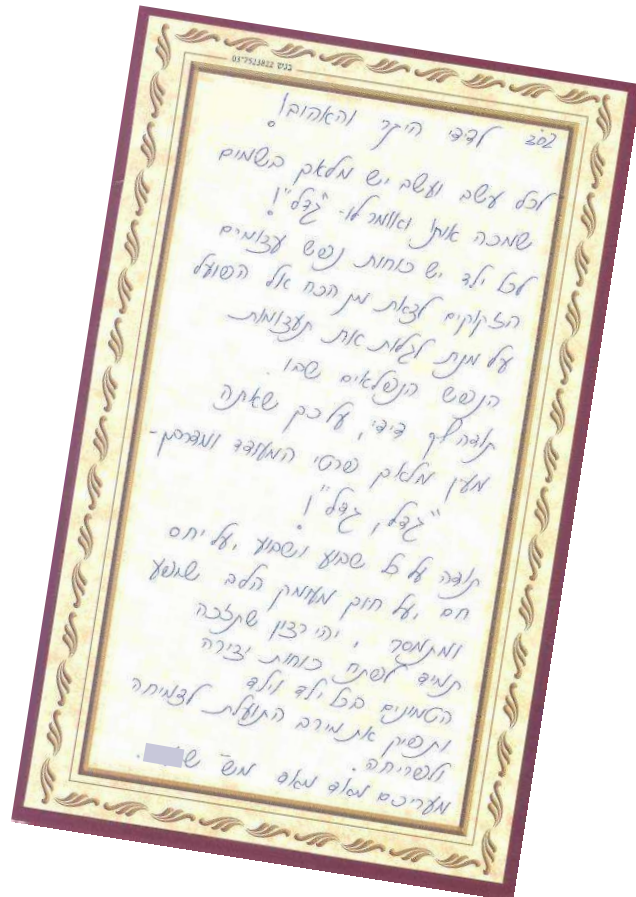 בגש 03-7523822
בס"ד לדידי היקר והאהוב!
לכל עשב ועשב יש מלאך בשמים
שמכה אותו ואומר לו- "גדל"!
לכל ילד יש כוחות נפש עצומים
הזקוקים לצאת מן הכח אל הפועל
על מנת לגלות את תעצומות
הנפש הנפלאים שבו.
תודה לך דידי, על כך שאתה
מעין מלאך פרטי המעודד ומדרבן-
"גדל, גדל"!
תודה על כל שבוע ושבוע, על יחס
חם, על חיוך מעומק הלב שופע
ומתמסר, יהי רצון שתזכה
תמיד לפתח כוחות יצירה
הטמונים בכל ילד וילד
ותפיק את מירב התועלת לצמיחה
ולפריחה.
מעריכים מאוד מאוד מש'